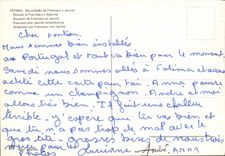 FATIMA - Recordação de Francisco e Jacinta
Ricordo di Francesco e Giacinta
Souvenir de Francisco et Jacinta
Francisco and Jacinta remembrance
Cher tonton,
Nous sommes bien installés
au Portugal et tout va bien pour le moment
Samedi nous sommes allés à Fatima et avons
acheté cette carte pour toi. Anna pousse
comme un champignon. André et moi
allons très bien. Il fait une chaleur
terrible - j'espère que tu vas bien et
que tu n'as pas trop de mal avec le
gros bisous et nous trois
Lucienne André ANNA
photos